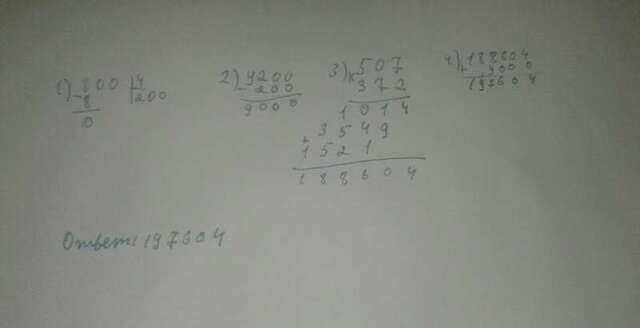 1) 800 | 4
- 8 | 200
0
2) 9200
- 200
9000
3) 507
x 372
1014
+ 3549
1521
188604
4) 188604
+ 9000
197604
Ответ: 197604